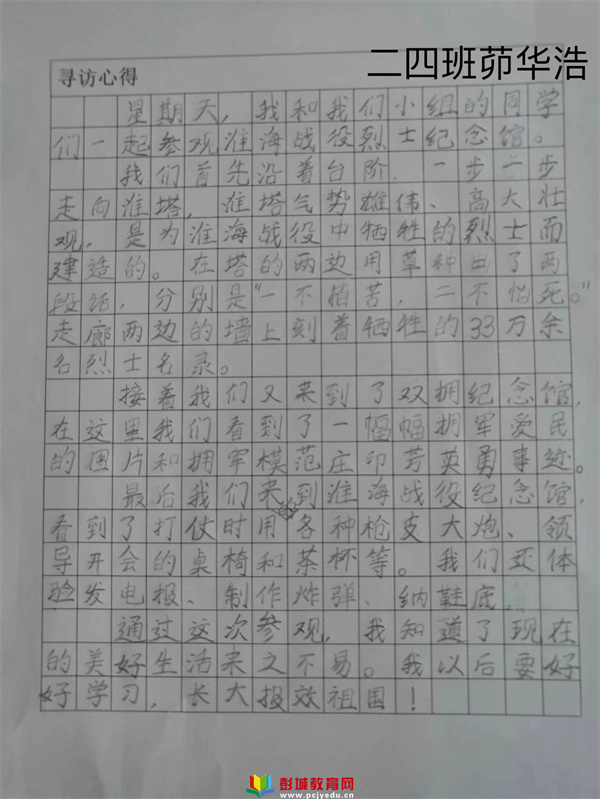 二四班茆华浩
寻访心得
星期天，我和我们小组的同学
们一起参观淮海战役烈士纪念馆。
我们首先沿着台阶，一步一步
走向淮塔，淮塔气势雄伟、高大壮
观，是为淮海战役中牺牲的烈士而
建造的。在塔的两边用草种出了两
段话，分别是“一不怕苦，二不怕死。”
走廊两边的墙上刻着牺牲的33万余
名烈士名录。
接着我们又来到了双拥纪念馆，
在这里我们看到了一幅幅拥军爱民
的图片和拥军模范庄印芳英勇事迹。
最后我们来到淮海战役纪念馆，
看到了打仗时用各种枪支大炮、领
导开会的桌椅和茶杯等。我们还体
验发电报、制作炸弹、纳鞋底..
通过这次参观，我知道了现在
的美好生活来之不易。我以后要好
好学习，长大报效祖国！
彭城教育网
www.pcjyedu.cn